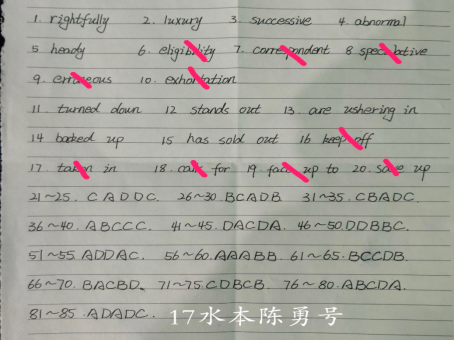 1. rightfully 2. luxury 3. successive 4. abnormal
5 heady 6. eligibility 7. correspondent 8 speculative
9. erroneous 10. exhortation
11. turned down 12 stands out 13. are ushering in
14 backed up 15 has sold out 16 keep off
17. taken in 18. call for 19. faced up to 20. save up
21~25. CADDC. 26~30. BCADB 31~35. CBADC.
36~40. ABCCC. 41~45. DACDA. 46~50. DDBBC.
51~55. ADDAC. 56~60. AAABB. 61~65. BCCDB.
66~70. BACBD. 71~75. CDBCB. 76~80. ABCDA.
81~85. ADADC. 17水本陈勇号